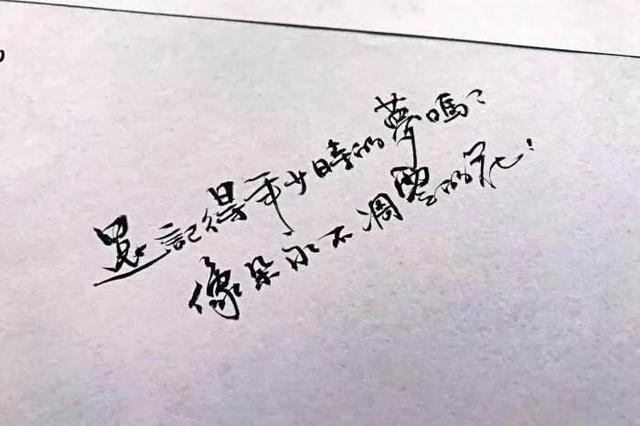 還記得年少時的夢嗎?
像朵永不凋零的花!